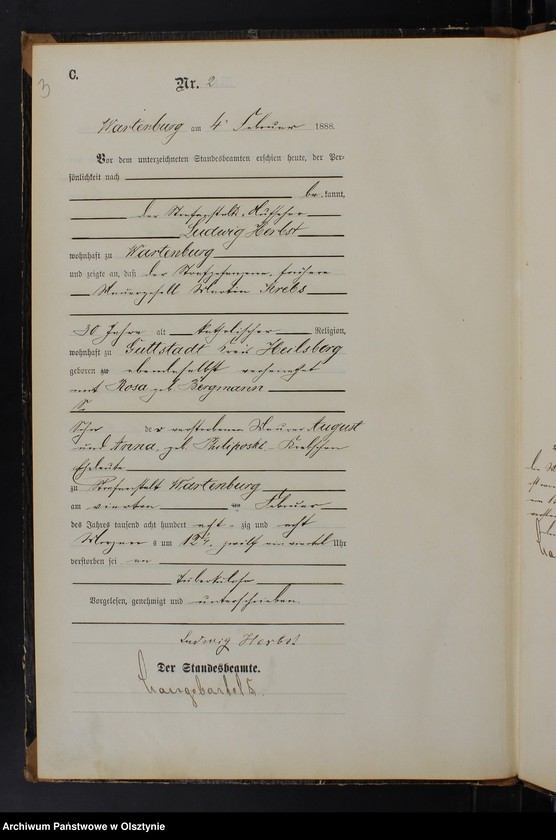 3
C.
Nr. 2
Wartenburg am 4 Februar 1888.
Vor dem unterzeichneten Standesbeamten erschien heute, der Per-
sönlichkeit nach
be kannt,
der Strafanstalts-Aufseher
Ludwig Herbst
wohnhaft zu Wartenburg
und zeigte an, daß der Strafgefangene, frühere
Maurergesell Martin Krebs
30 Jahre alt katholischer Religion,
wohnhaft zu Guttstadt Kreis Heilsberg
geboren zu ebendaselbst verheirathet
mit Rosa geb. Bergmann
Sohn der verstorbenen Maurer August
und Anna, geb.
Eheleute
zu Strafanstalt Wartenburg
am vierten Februar
des Jahres tausend acht hundert acht zig und acht
um 12¼ zwölf ein viertel Uhr
verstorben sei an
Tuberkulose
Vorgelesen, genehmigt und unterschrieben
Ludwig Herbst
Der Standesbeamte.
Archiwum Państwowe w Olsztynie